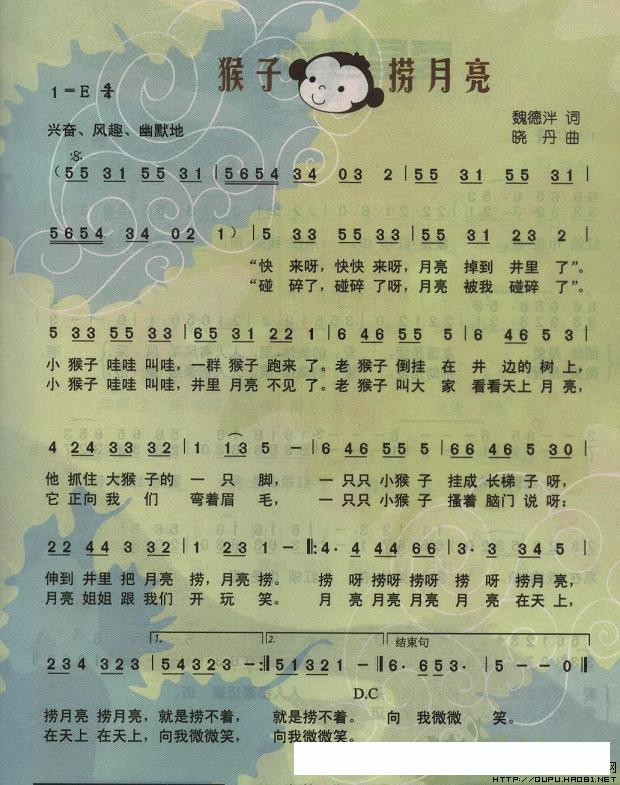 猴子捞月亮
1=E 4/4
魏德泮 词
兴奋、风趣、幽默地
晓丹 曲
(55 31 55 31 | 5654 34 03 2 | 55 31 55 31 |
5654 34 02 1) | 5 33 55 33 | 55 31 23 2 |
“快 来呀，快快 来呀，月亮 掉到 井里 了”。
“碰 碎了，碰碎 了呀，月亮 被我 碰碎 了”。
5 33 55 33 | 65 31 22 1 | 6 46 55 5 | 6 46 5 3 |
小 猴子 哇哇 叫哇，一群 猴子 跑来 了。老 猴子 倒挂 在 井 边的 树 上，
小 猴子 哇哇 叫哇，井里 月亮 不见 了。老 猴子 叫大 家 看看 天上 月 亮，
4 24 33 32 | 1 13 5 － | 6 46 55 5 | 66 46 5 30 |
他 抓住 大猴 子的 一 只 脚， 一 只只 小猴 子 挂成 长梯 子 呀，
它 正向 我 们 弯着 眉 毛， 一 只只 小猴 子 搔着 脑门 说 呀：
22 44 3 32 | 1 23 1 － ‖: 4· 4 44 66 | 3· 3 34 5 |
伸到 井里 把 月亮 捞，月亮 捞。 捞 呀 捞呀 捞呀 捞 呀 捞月 亮，
月亮 姐姐 跟 我们 开 玩 笑。 月 亮 月亮 月亮 月 亮 在天 上，
1. 2. 结束句
234 323 | 54323 － :‖ 51321 － ‖ 6· 653· | 5 － － 0 ‖
D.C
捞月亮 捞月亮，就是捞不着， 就是捞不着。 向 我微微 笑。
在天上 在天上，向我微微笑， 向我微微笑。
网
HTTP://QUPU.HAO81.NET